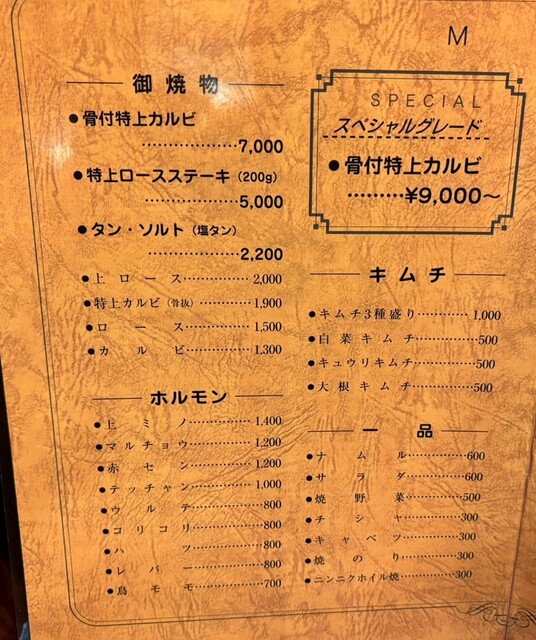 M
御焼物
●骨付特上カルビ
……………7,000
●特上ロースステーキ（200g）
……………5,000
●タン・ソルト（塩タン）
……………2,200
●上ロース……2,000
●特上カルビ（骨抜）……1,900
●ロース……1,500
●カルビ……1,300
ホルモン
●上ミノ……1,400
●マルチョウ……1,200
●赤セン……1,200
●テッチャン……1,000
●ウルテ……800
●コリコリ……800
●ハツ……800
●レバー……800
●鳥モモ……700
SPECIAL
スペシャルグレード
●骨付特上カルビ
………¥9,000～
キムチ
●キムチ3種盛り……1,000
●白菜キムチ……500
●キュウリキムチ……500
●大根キムチ……500
一品
●ナムル……600
●サラダ……600
●焼野菜……500
●チシャ……300
●キャベツ……300
●焼のり……300
●ニンニクホイル焼……300